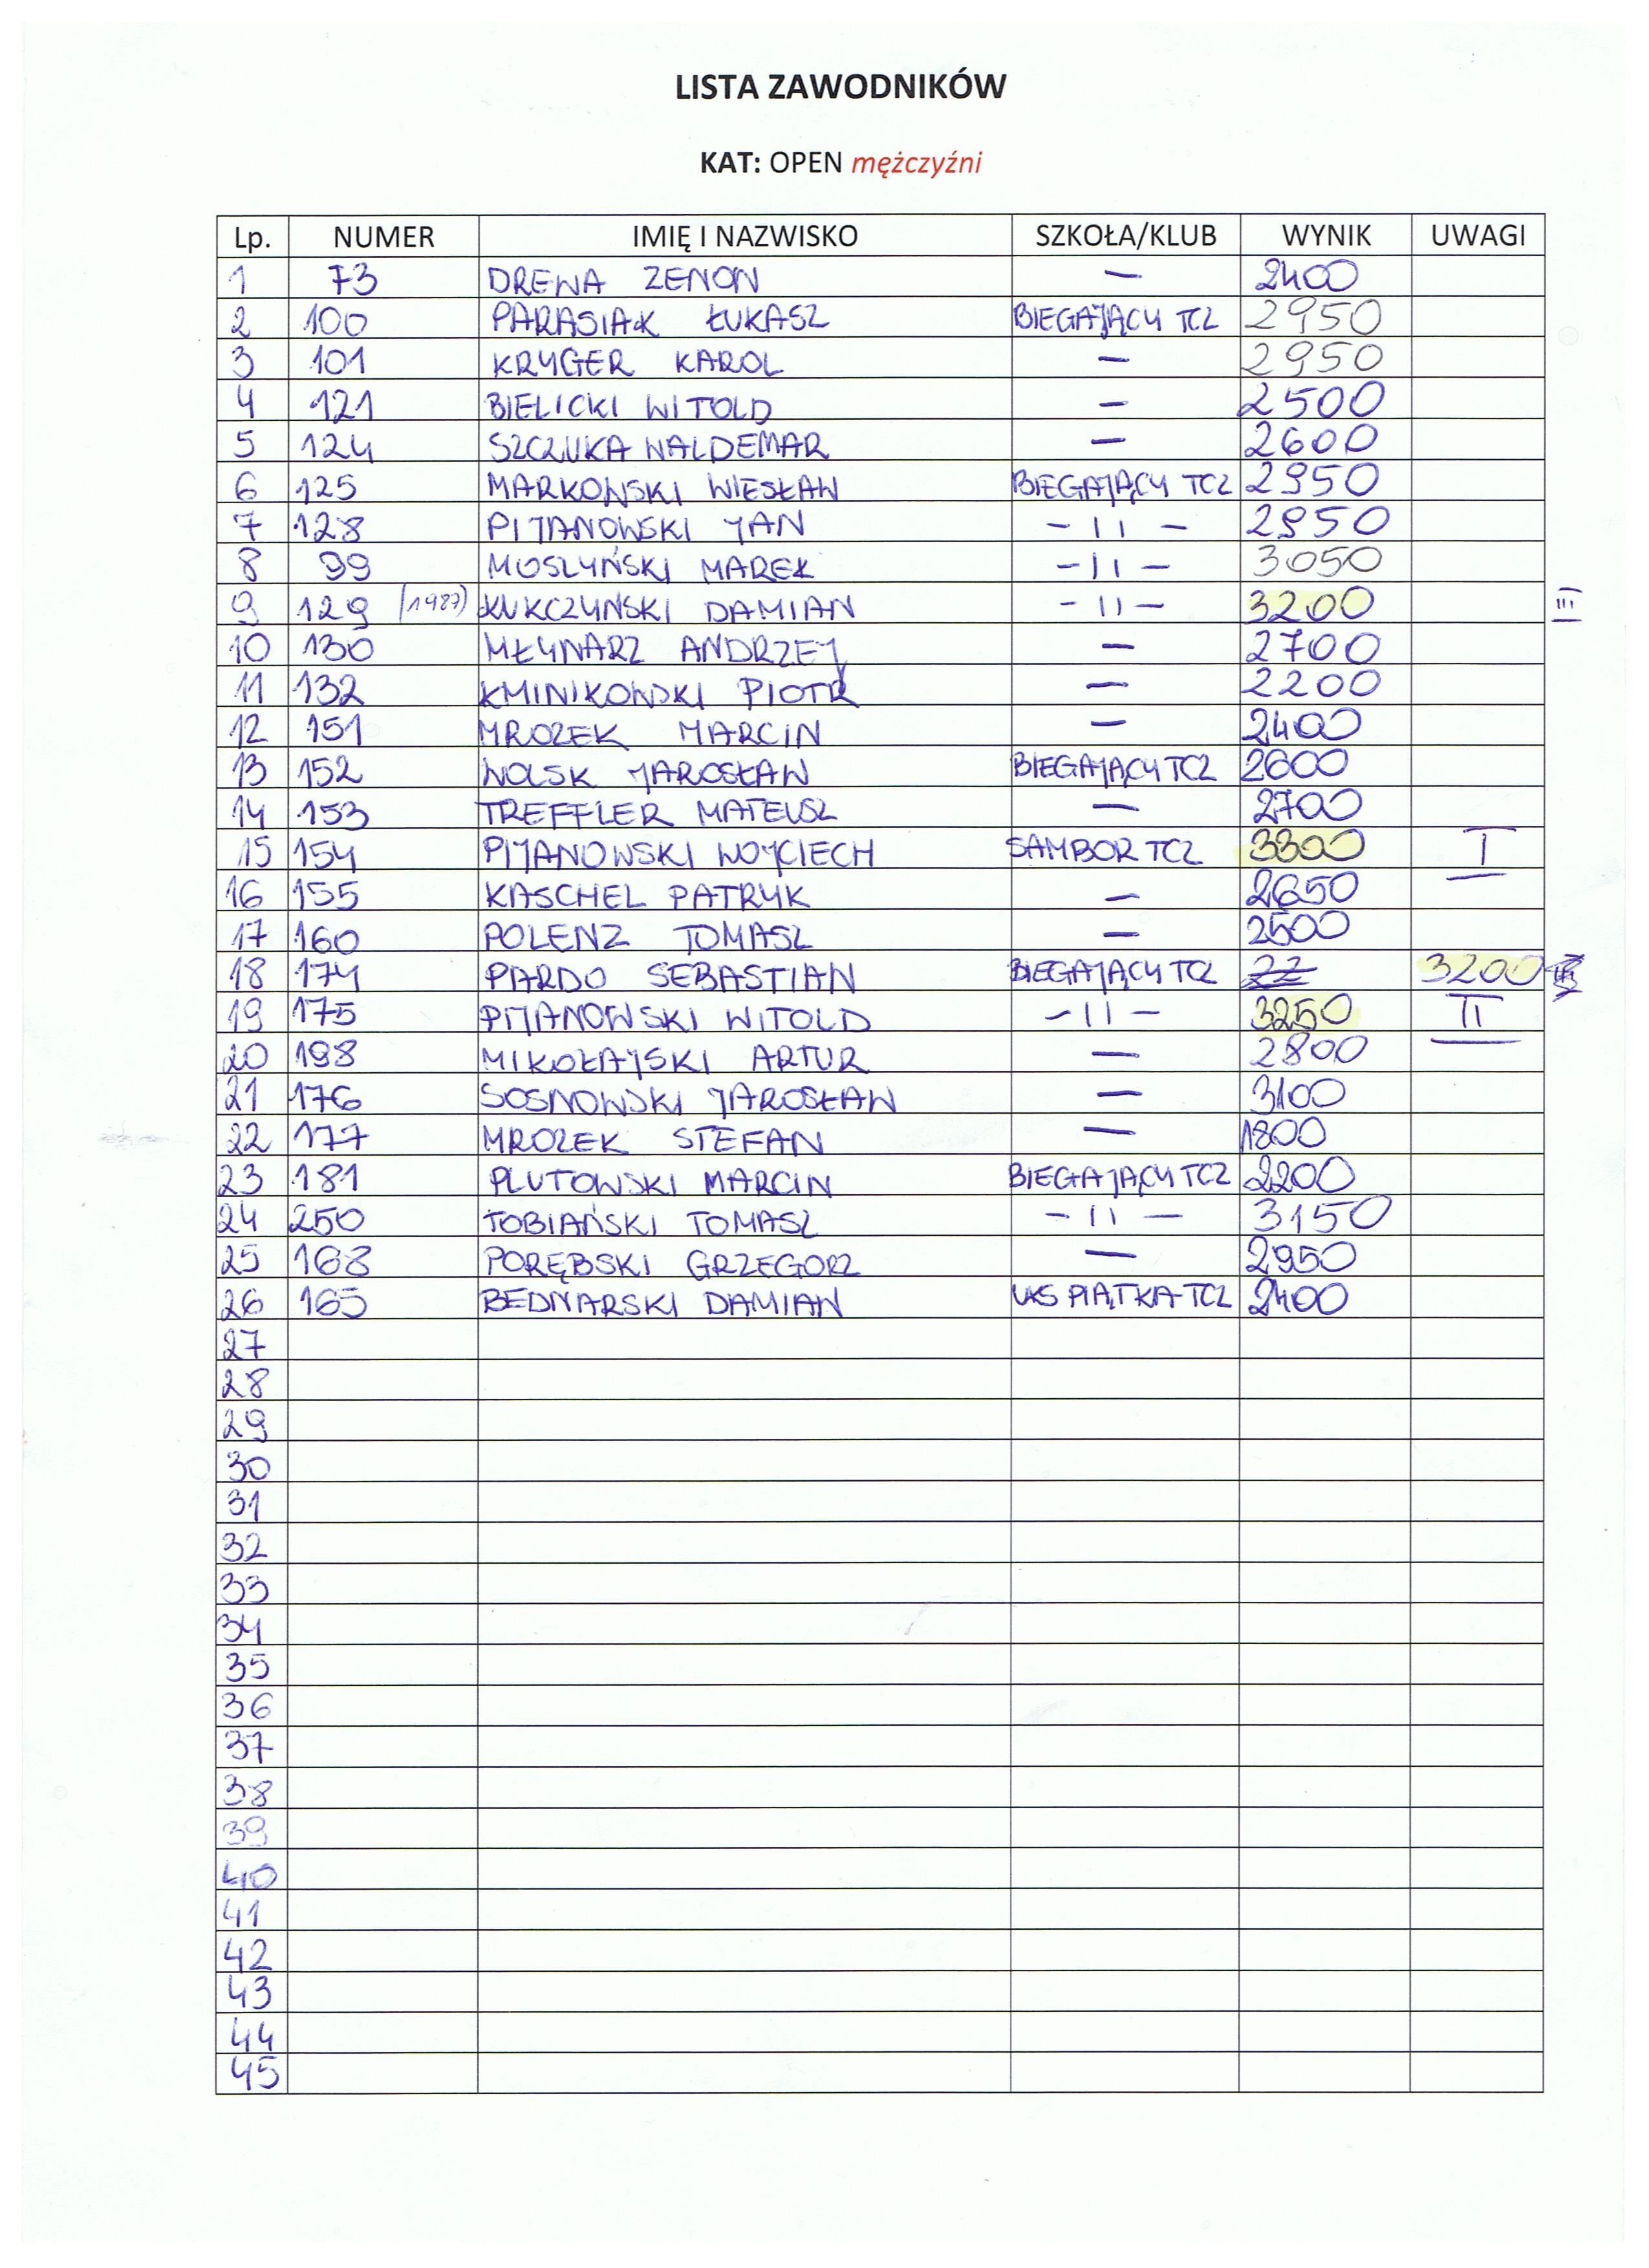 LISTA ZAWODNIKÓW
KAT: OPEN mężczyźni
Lp. NUMER IMIĘ I NAZWISKO SZKOŁA/KLUB WYNIK UWAGI
1 73 DREWA ZENON — 2400
2 100 PARASIAK ŁUKASZ BIEGAJĄCY TCZ 2950
3 101 KRYGER KAROL — 2950
4 121 BIELICKI WITOLD — 2500
5 124 SZCZUKA WALDEMAR — 2600
6 125 MARKOWSKI WIESŁAW BIEGAJĄCY TCZ 2950
7 128 PIJANOWSKI JAN - 11 - 2950
8 99 MUSZYŃSKI MAREK - 11 - 3050
9 129 (1987) KUKCZYŃSKI DAMIAN - 11 - 3200 III
10 130 MŁYNARZ ANDRZEJ — 2700
11 132 KMINIKOWSKI PIOTR — 2200
12 151 MROZEK MARCIN — 2400
13 152 WOLSK JAROSŁAW BIEGAJĄCY TCZ 2600
14 153 TREFFLER MATEUSZ — 2700
15 154 PIJANOWSKI WOJCIECH SAMBOR TCZ 3300 I
16 155 KASCHEL PATRYK — 2650
17 160 POLENZ TOMASZ — 2500
18 174 PARDO SEBASTIAN BIEGAJĄCY TCZ 3200
19 175 PIJANOWSKI WITOLD - 11 - 3250 II
20 198 MIKOŁAJSKI ARTUR — 2800
21 176 SOSNOWSKI JAROSŁAW — 3100
22 177 MROZEK STEFAN — 1800
23 181 PLUTOWSKI MARCIN BIEGAJĄCY TCZ 2200
24 250 TOBIAŃSKI TOMASZ - 11 - 3150
25 168 PORĘBSKI GRZEGORZ — 2950
26 165 BEDNARSKI DAMIAN UKS PIĄTKA TCZ 2400
27
28
29
30
31
32
33
34
35
36
37
38
39
40
41
42
43
44
45